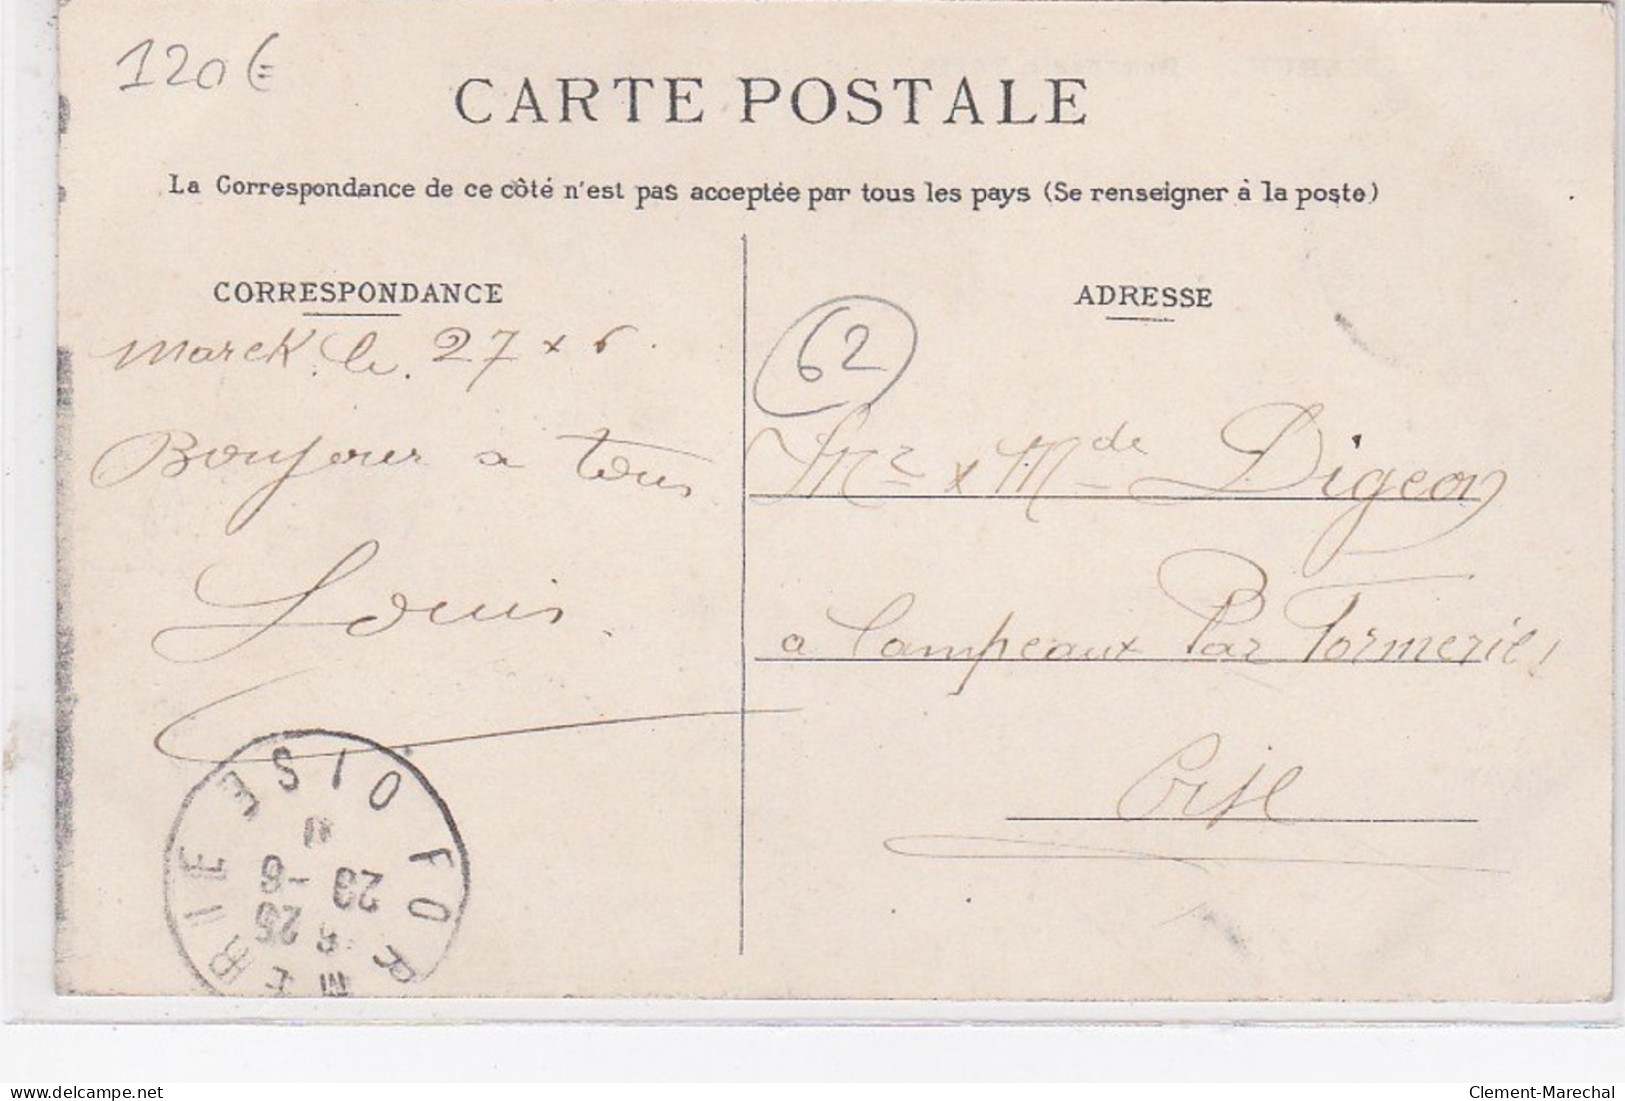 120€
CARTE POSTALE
La Correspondance de ce côté n'est pas acceptée par tous les pays (Se renseigner à la poste)
CORRESPONDANCE
Marck. le. 27 x 6.
Bonjour a tous
Louis.
ADRESSE
62
Mr x Mde Digeon
a Campeaux Par Formerie,
Oise
FORMERIE OISE
23 -6
delcampe.net
Clement-Marechal